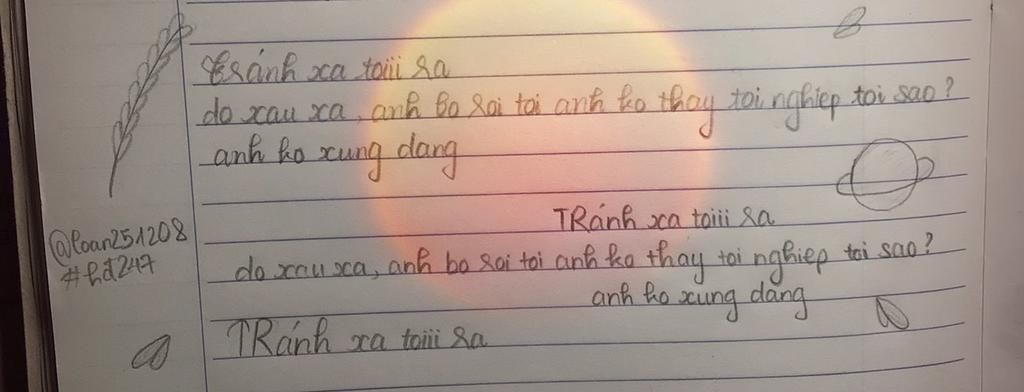 tránh xa toiii ra
do xau xa, anh bo roi toi anh ko thay toi nghiep toi sao?
anh ko xung dang
TRánh xa toiii ra
do xau xa, anh bo roi toi anh ko thay toi nghiep toi sao?
anh ko xung dang
TRánh xa toiii ra
@loan251208
#hd247